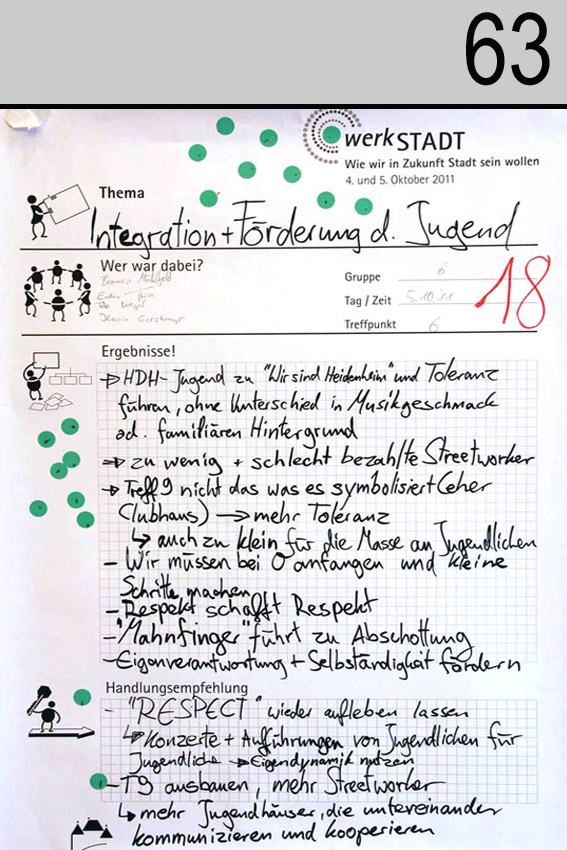 63
werkSTADT
Wie wir in Zukunft Stadt sein wollen
4. und 5. Oktober 2011
Thema
Integration + Förderung d. Jugend
Wer war dabei?
Gruppe 6
18
Tag / Zeit 5.10.11
Treffpunkt 6
Ergebnisse!
→ HDH-Jugend zu "Wir sind Heidenheim" und Toleranz
führen, ohne Unterschied in Musikgeschmack
od. familiären Hintergrund
→ zu wenig + schlecht bezahlte Streetworker
→ Treff 9 nicht das was es symbolisiert (eher
Clubhaus) → mehr Toleranz
↳ auch zu klein für die Masse an Jugendlichen
- Wir müssen bei 0 anfangen und kleine
Schritte machen
- Respekt schafft Respekt
- "Mahnfinger" führt zu Abschottung
- Eigenverantwortung + Selbständigkeit fördern
Handlungsempfehlung
- "RESPECT" wieder aufleben lassen
↳ Konzerte + Aufführungen von Jugendlichen für
Jugendliche → Eigendynamik nutzen
- T9 ausbauen, mehr Streetworker
↳ mehr Jugendhäuser, die untereinander
kommunizieren und kooperieren